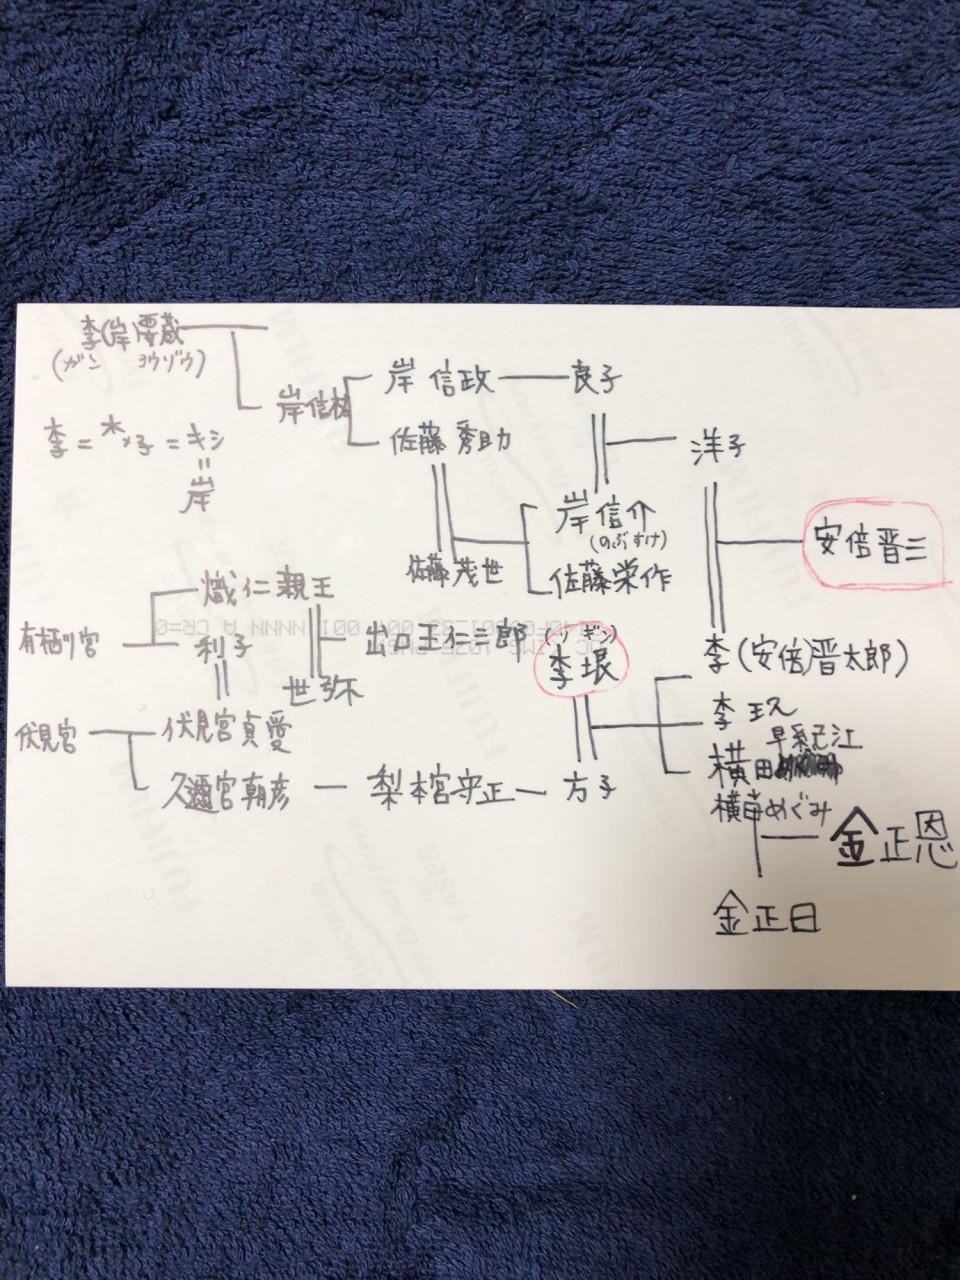 李(岸)要蔵
(ガン ヨウゾウ)
李=木×子=キシ
=
岸
岸信
岸 信政
良子
佐藤 秀助
佐藤茂世
岸 信介
(のぶすけ)
佐藤栄作
洋子
安倍晋三
李(安倍)晋太郎)
有栖川宮
熾仁親王
利子
世祢
出口王仁三郎
(リ ギン)
李垠
伏見宮
伏見宮貞愛
久邇宮朝彦
梨本宮守正
方子
李 玖
早紀江
横田
横田めぐみ
金正恩
金正日
FUJIFILM
FUJIFILM
FUJIFILM
LASER